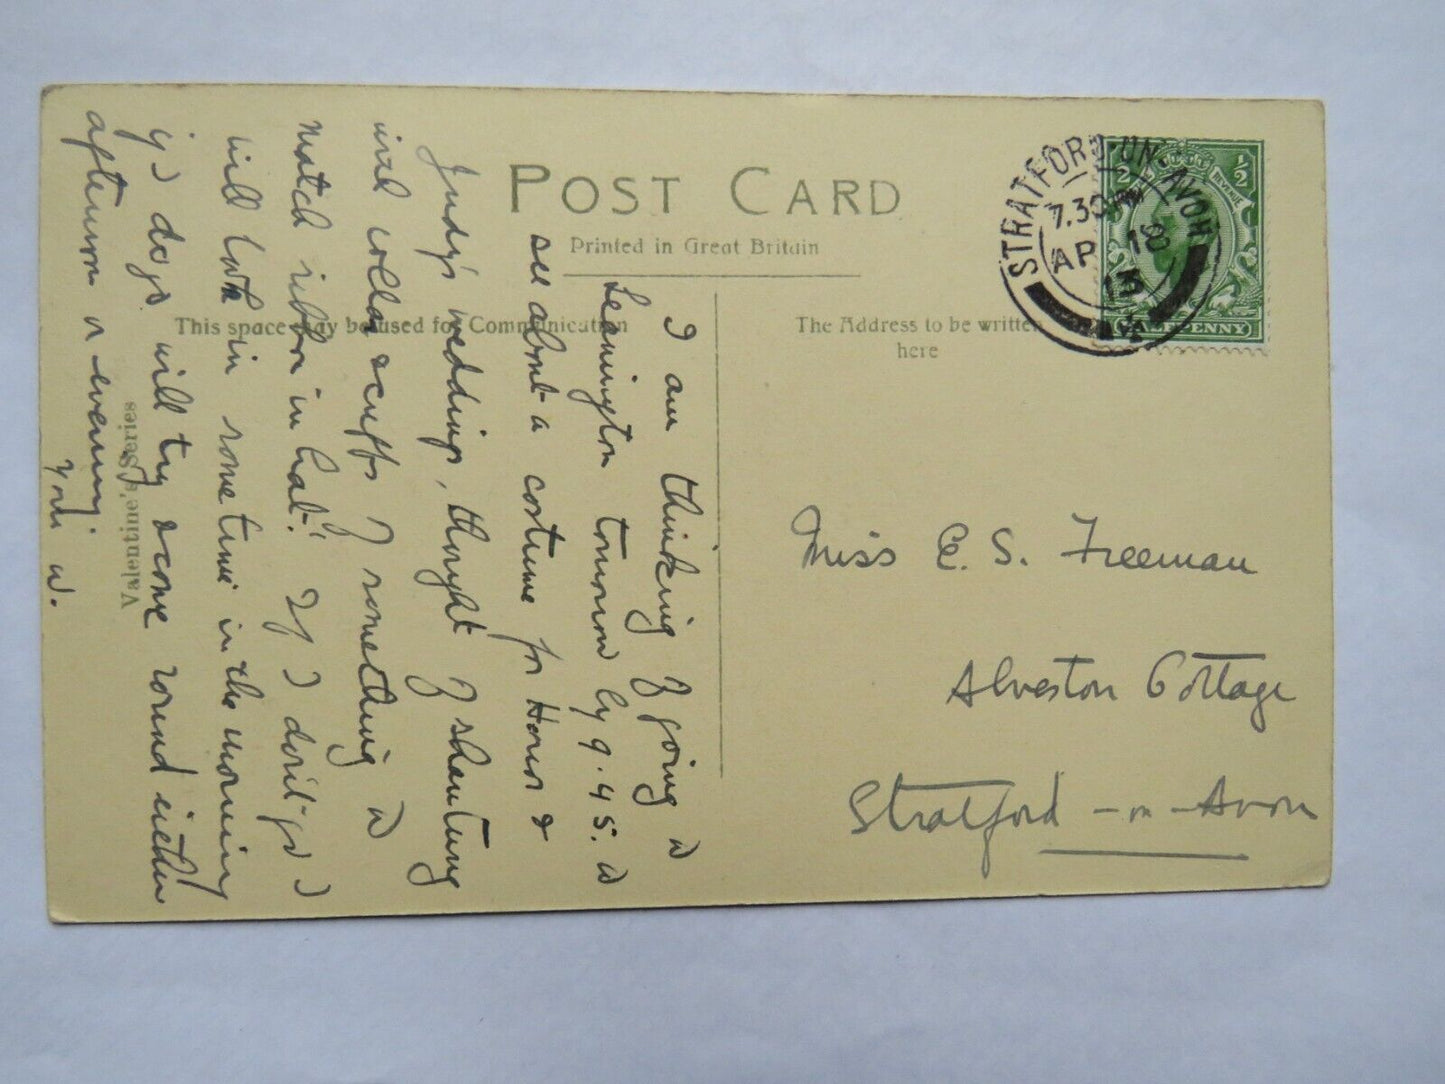 POST CARD
Printed in Great Britain
This space may be used for Communication
The Address to be written
here
Valentine's Series
STRATFORD-UN-AVON
7.30PM
AP 18
13
1/2 REVENUE 1/2
HALFPENNY
I am thinking of going to
Leamington tomorrow by 9.45. to
see about a costume for Honor &
Judy's wedding, thought of shantung
with collar & cuffs of something to
match ribbon in hat. If I don't go I
will look in sometime in the morning
if I do go will try & come round either
afternoon or evening.
Yours W.
Miss E. S. Freeman
Alveston Cottage
Stratford-on-Avon